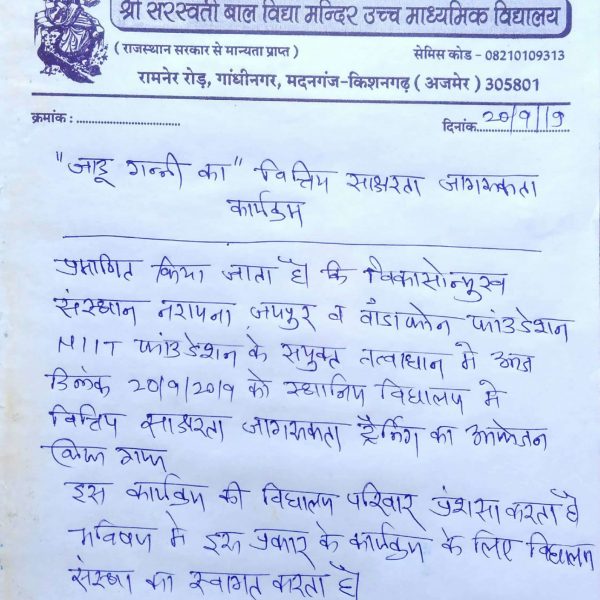 श्री सरस्वती बाल विद्या मन्दिर उच्च माध्यमिक विद्यालय
( राजस्थान सरकार से मान्यता प्राप्त )
सेमिस कोड - 08210109313
रामनेर रोड़, गांधीनगर, मदनगंज-किशनगढ़ ( अजमेर ) 305801
क्रमांक :
दिनांक 20/9/19
"जादू गन्नी का" वित्तिय साक्षरता जागरूकता
कार्यक्रम
प्रमाणित किया जाता है कि विकासोन्मुख
संस्थान नरायना जयपुर व वोडाफोन फांउडेशन
NIIT फांउडेशन के सयुक्त तत्वाधान मे आज
दिनांक 20/9/2019 को स्थानिय विद्यालय मे
वित्तिय साक्षरता जागरूकता ट्रैनिंग का आयोजन
किया गया
इस कार्यक्रम की विद्यालय परिवार प्रंशसा करता है
भविषय मे इस प्रकार के कार्यक्रम के लिए विद्यालय
संस्था का स्वागत करता है